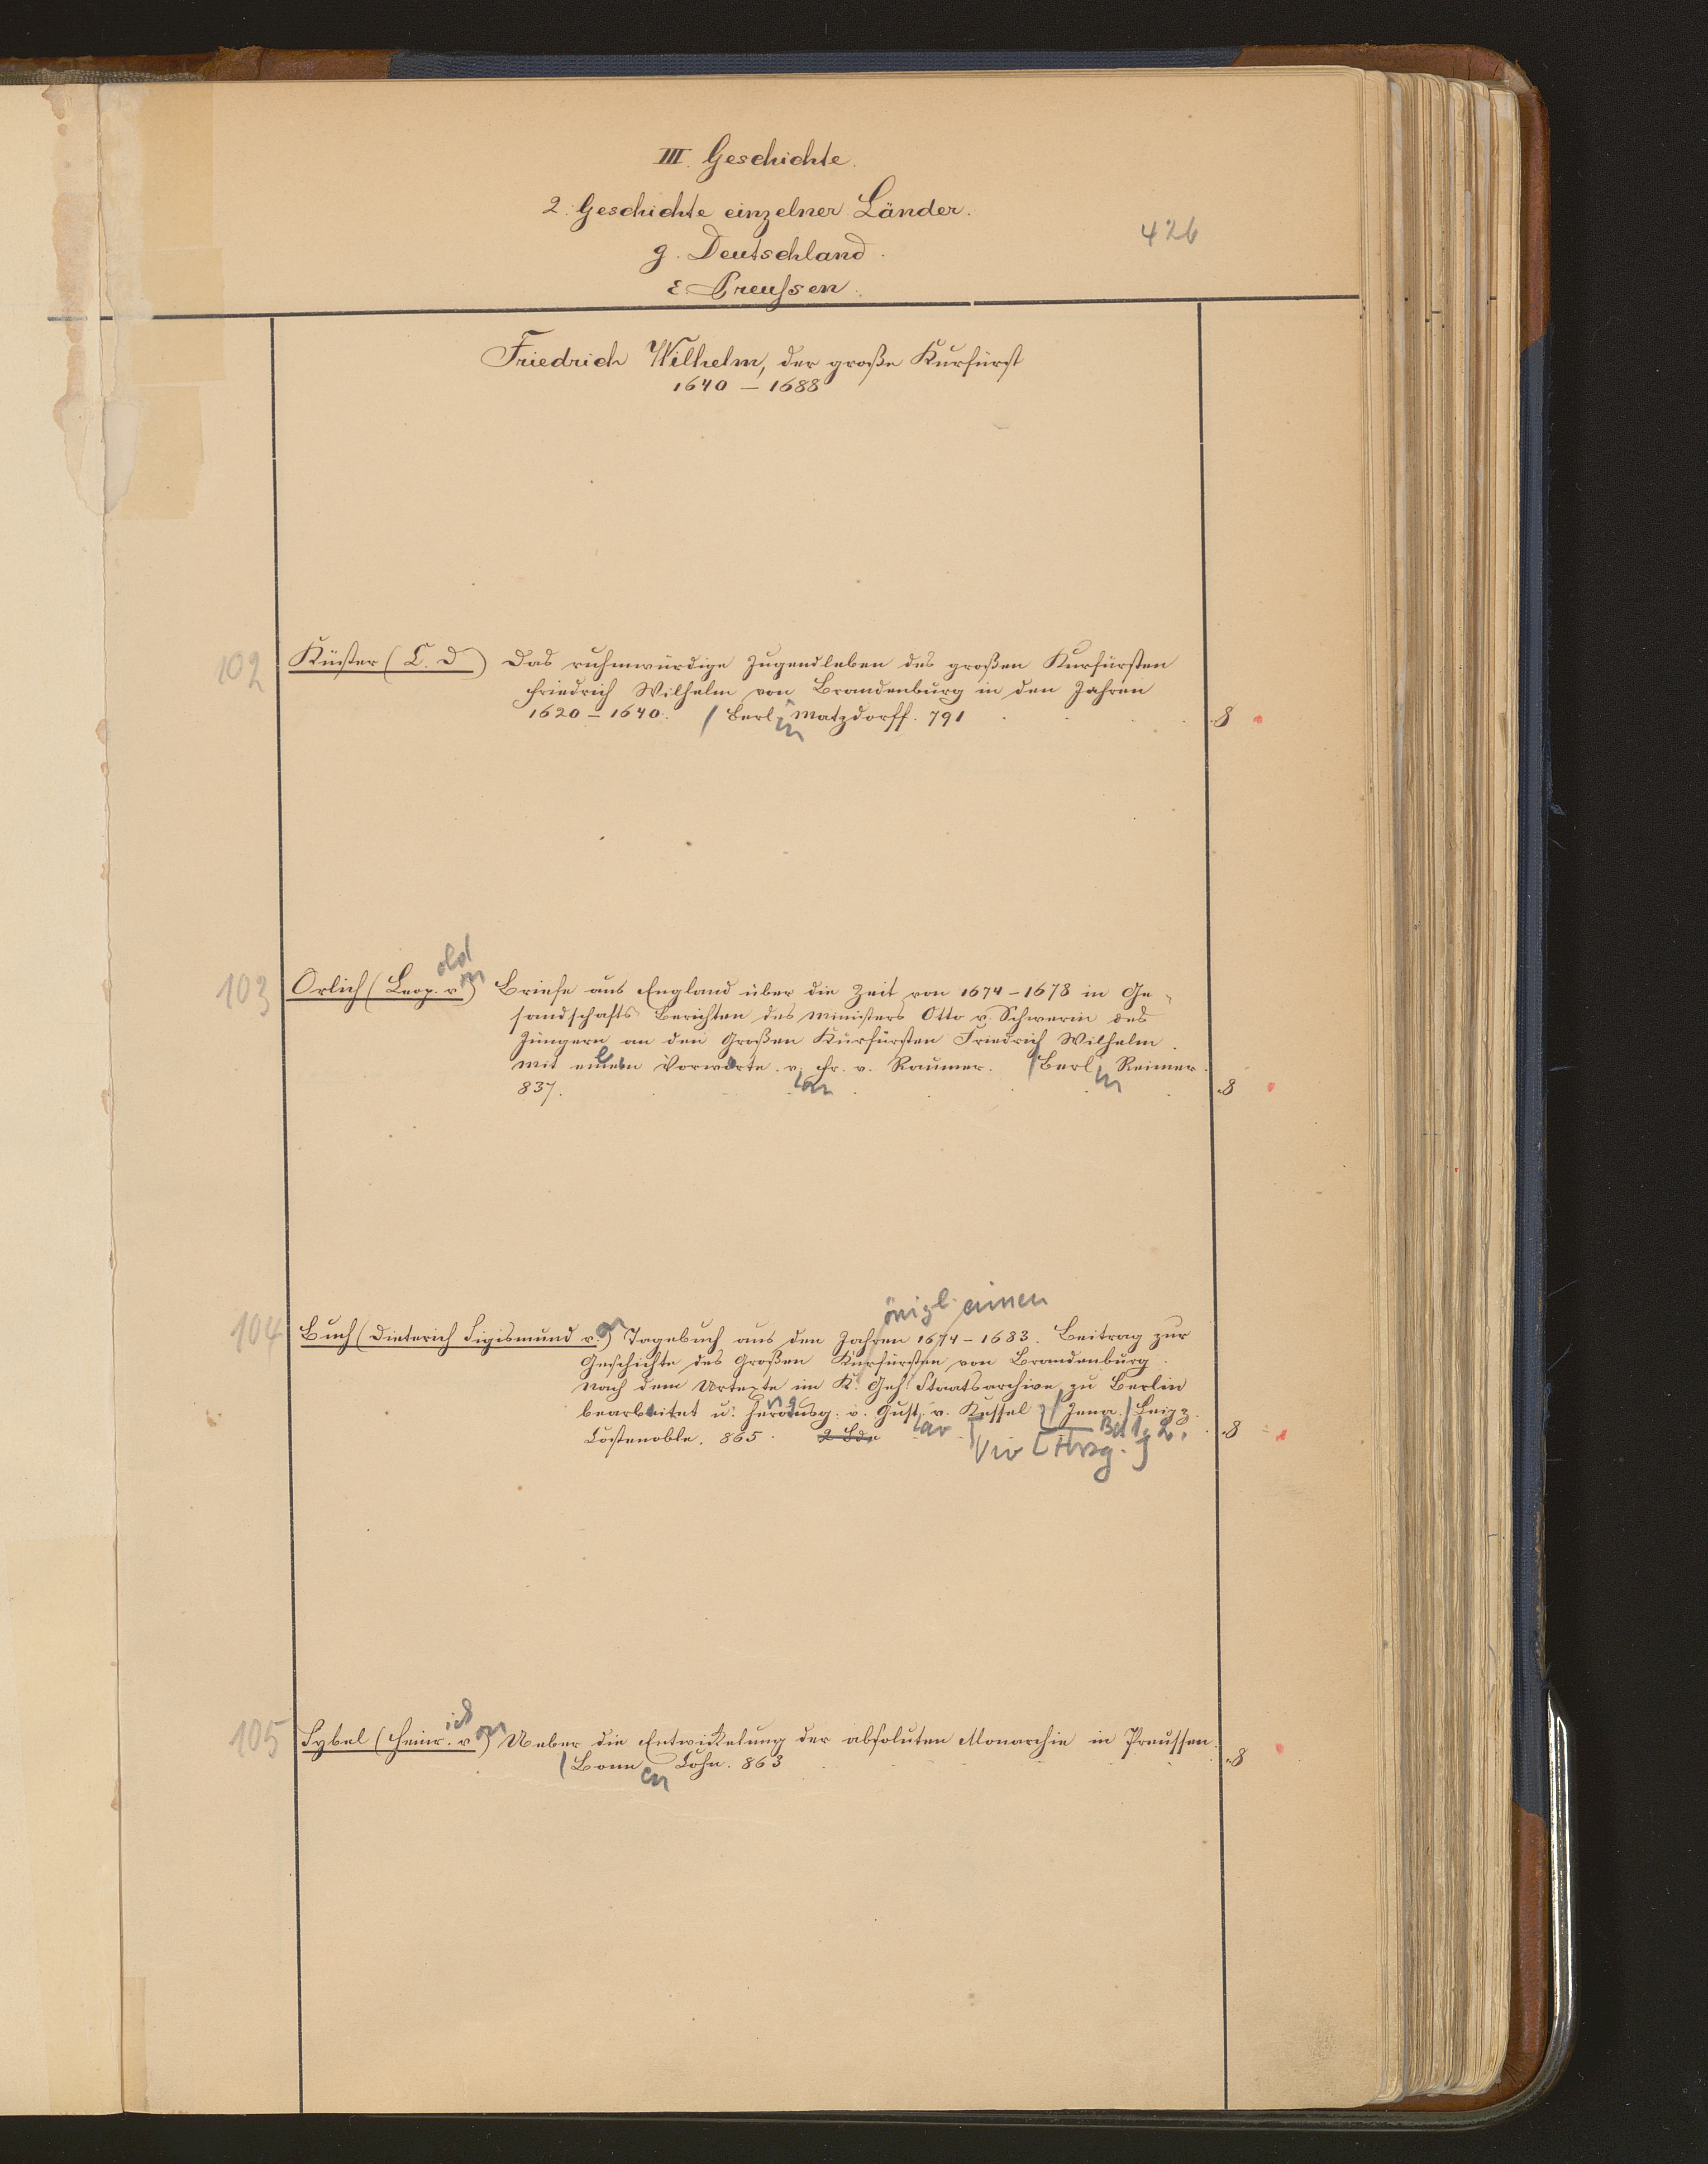 III. Geschichte.
2. Geschichte einzelner Länder.
426
g. Deutschland.
ε Preußen.
Friedrich Wilhelm, der große Kurfürst
1640 – 1688
102 Küster (C. D) Das ruhmwürdige Jugendleben des großen Kurfürsten
Friedrich Wilhelm von Brandenburg in den Jahren
1620 – 1640. / Berl in Matzdorff. 791 8
old
103 Orlich (Leop. von) Briefe aus England über die Zeit von 1674 – 1678 in Ge-
sandschafts Berichten des Ministers Otto v. Schwerin des
Jüngern an den Großen Kurfürsten Friedrich Wilhelm.
Mit einem Vorworte v. Fr. v. Raumer. / Berl in Reimer.
837. 8
önigl. einen
104 Buch (Dieterich Sigismund von) Tagebuch aus den Jahren 1674 – 1683. Beitrag zur
Geschichte des Großen Kurfürsten von Brandenburg.
Nach dem Urtexte im K. Geh. Staatsarchive zu Berlin
bearbeitet u. herausg. v. Gust. v. Kessel / Jena / Leipz.
Costenoble. 865. 2 Bde Bd 1. 2. 8
[Hrsg.]
ich
105 Sybel (Heinr. von) Ueber die Entwickelung der absoluten Monarchie in Preussen.
/ Bonn Cohn. 863 8
en